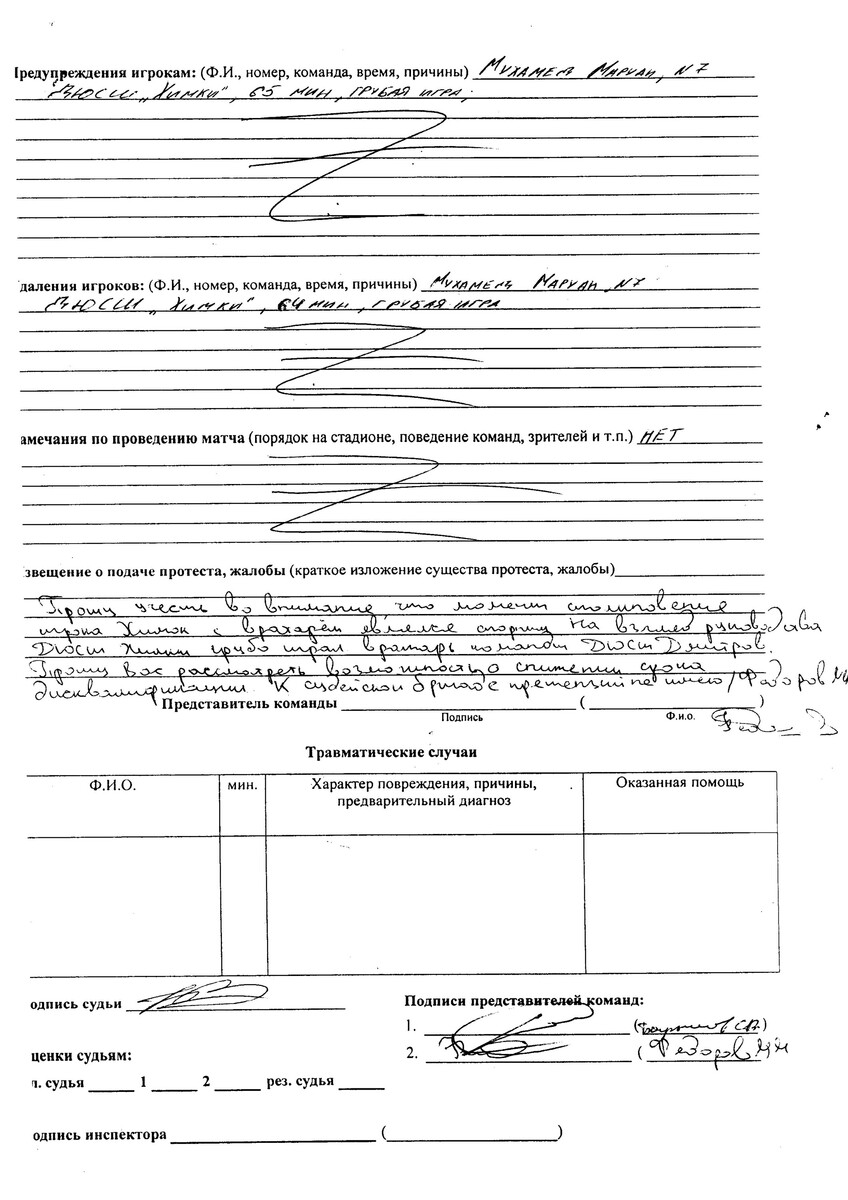 Предупреждения игрокам: (Ф.И., номер, команда, время, причины) Мухамед Маруан, N7
ДЮСШ „Химки", 65 мин, грубая игра,
далення игроков: (Ф.И., номер, команда, время, причины) Мухамед Маруан N7
ДЮСШ „Химки", 64 мин, грубая игра
амечания по проведению матча (порядок на стадионе, поведение команд, зрителей и т.п.) НЕТ
звещение о подаче протеста, жалобы (краткое изложение существа протеста, жалобы)
Прошу учесть во внимание, что момент столкновения
игрока Химок с вратарём являлся спорным На взгляд руководства
ДЮСШ Химки грубо играл вратарь команды ДЮСШ Дмитров.
Прошу Вас рассмотреть возможность о снижении срока
дисквалификации. К судейской бригаде претензий не имею /Федоров ИИ
Представитель команды ( )
Подпись Ф.и.о.
Травматические случаи
Ф.И.О. мин. Характер повреждения, причины, предварительный диагноз Оказанная помощь
одпись судьи
Подписи представителей команд:
1.
2. (Федоров ИИ
ценки судьям:
л. судья 1 2 рез. судья
одпись инспектора ( )